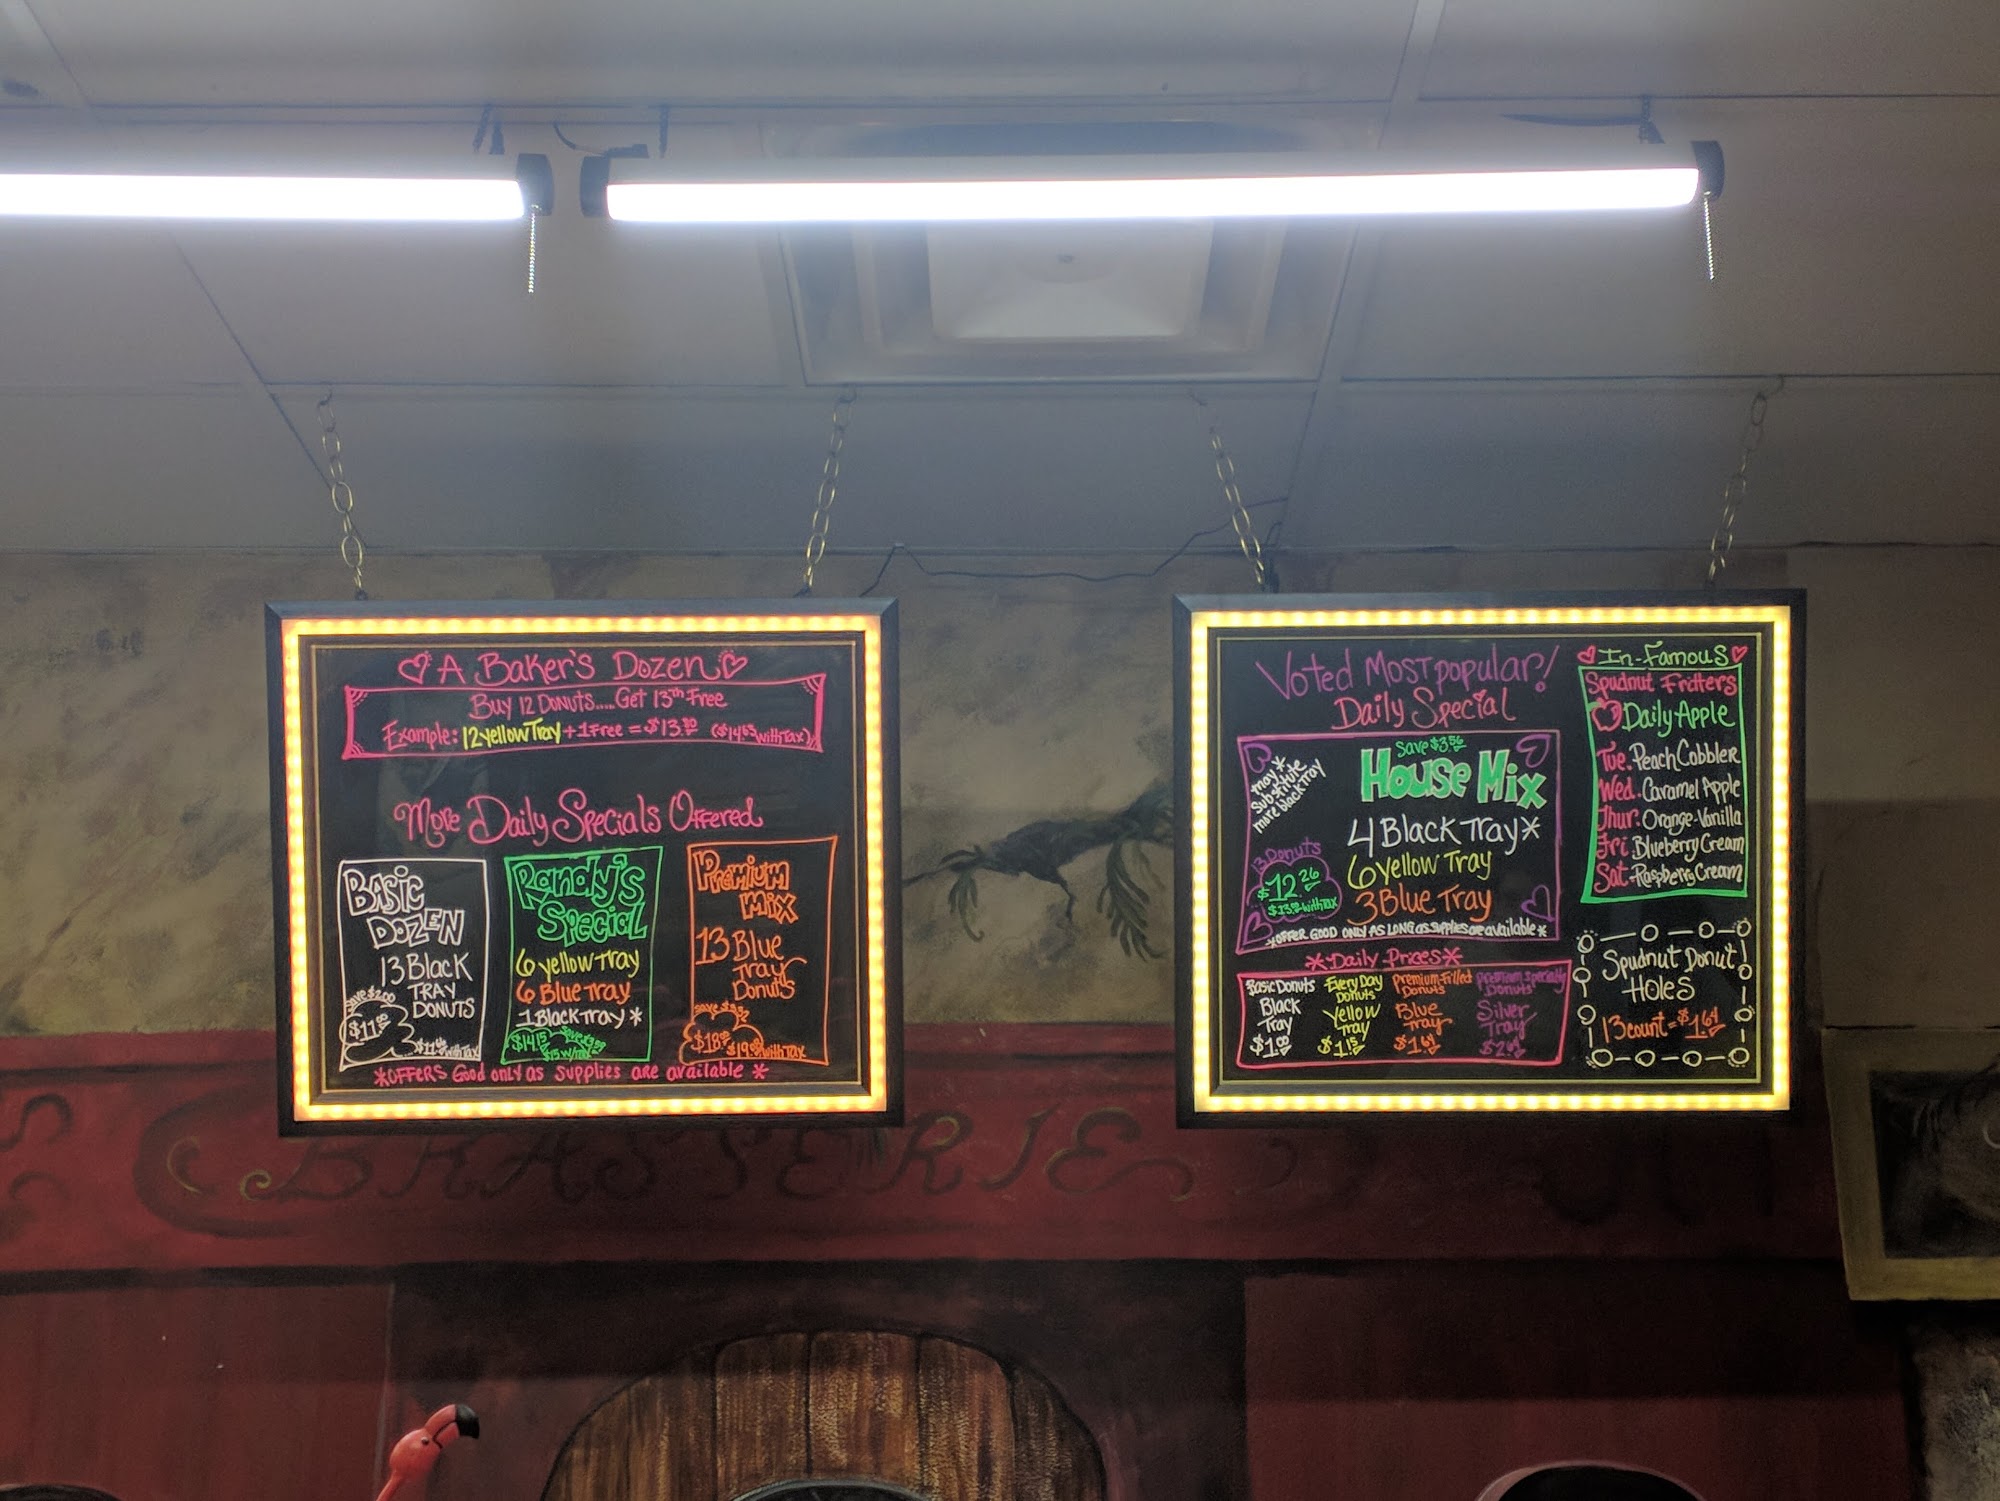 A Baker's Dozen
Buy 12 Donuts.....Get 13th Free
Example: 12 yellow Tray + 1 Free = $13.80 ($14.63 with Tax)
More Daily Specials Offered
BASIC
DOZEN
13 Black
TRAY
DONUTS
Save $2.00
with Tax
Randy's
Special
6 yellow Tray
6 Blue Tray
1 Black Tray *
$14.15
Premium
Mix
13 Blue
Tray
Donuts
with Tax
*OFFERS Good only as supplies are available *
Voted Most popular!
Daily Special
Save $3.56
House Mix
may *
Substitute
more black tray
4 Black Tray *
6 yellow Tray
3 Blue Tray
13 Donuts
$12.26
with Tax
*OFFER GOOD ONLY AS LONG AS supplies are available *
*Daily Prices*
Basic Donuts
Black
Tray
Every Day
Donuts
Yellow
Tray
$1.15
Premium-Filled
Donuts
Blue
Tray
$1.64
Premium Specialty
Donuts
Silver
Tray
In-Famous
Spudnut Fritters
Daily Apple
Tue. Peach Cobbler
Wed. Caramel Apple
Thur. Orange-Vanilla
Fri. Blueberry Cream
Sat. Raspberry Cream
Spudnut Donut
Holes
13 count = $1.64
BRASSERIE